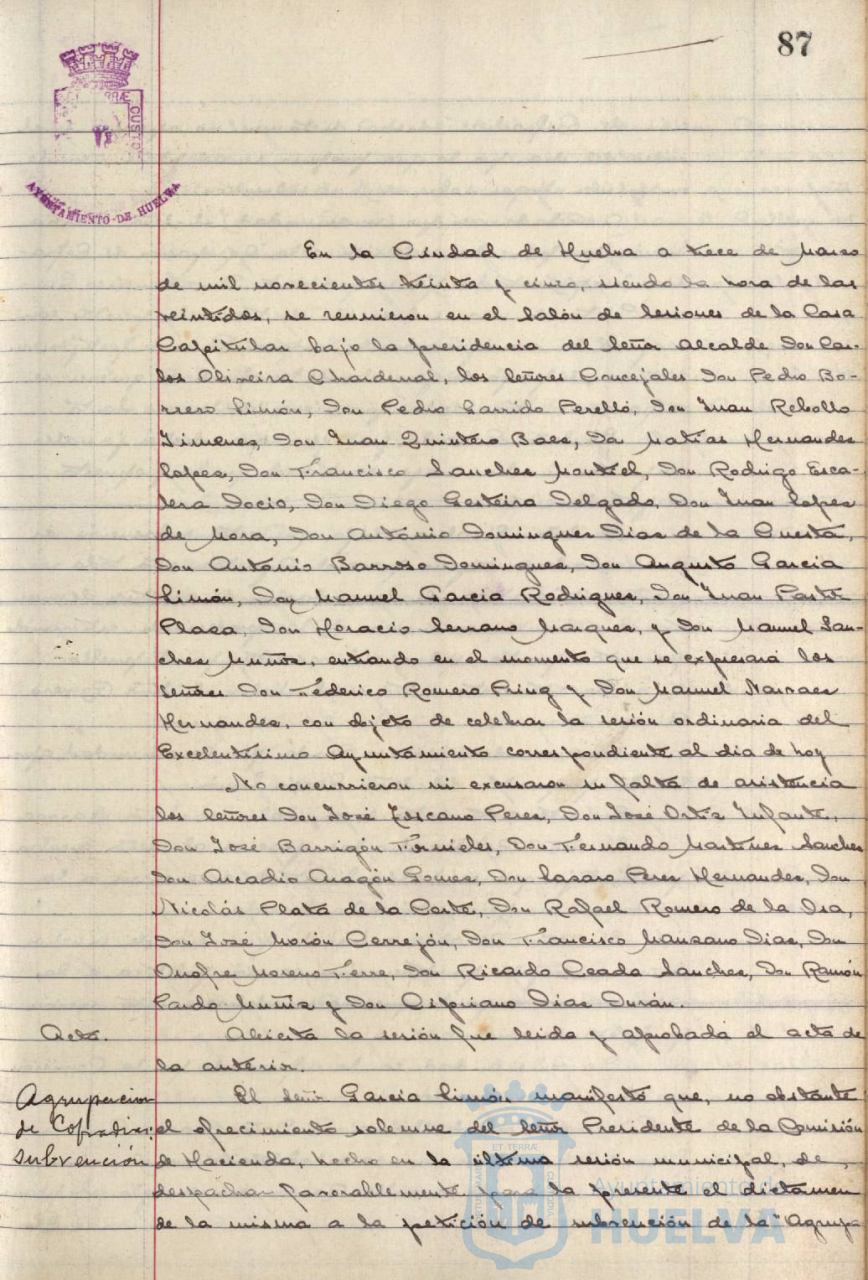 87
AYUNTAMIENTO-DE-HUELVA
En la Ciudad de Huelva a trece de Marzo
de mil novecientos treinta y cinco, siendo la hora de las
veintidos, se reunieron en el Salón de Sesiones de la Casa
Capitular bajo la presidencia del Señor Alcalde Don Car-
los Oliveira Chardenal, los Señores Concejales Don Pedro Bo-
rrero Limón, Don Pedro Garrido Perelló, Don Juan Rebollo
Jimenez, Don Juan Quintero Baez, Don Matías Hernandez
Lopez, Don Francisco Sanchez Montiel, Don Rodrigo Esca-
lera Docio, Don Diego Gesteira Delgado, Don Juan Lopez
de Mora, Don António Dominguez Diaz de la Cuesta,
Don António Barroso Dominguez, Don Augusto Garcia
Limón, Don Manuel Garcia Rodriguez, Don Juan Pastor
Plaza, Don Horacio Serrano Marquez, y Don Manuel San-
chez Muñoz, entrando en el momento que se expresará los
Señores Don Féderico Romero Pring y Don Manuel Narvaez
Hernandez, con objeto de celebrar la sesión ordinaria del
Excelentísimo Ayuntamiento correspondiente al dia de hoy
No concurrieron ni excusaron su falta de asistencia
los Señores Don José Toscano Perez, Don José Ortiz Infante,
Don José Barrigón Fornieles, Don Fernando Martinez Sanchez
Don Arcadio Aragón Gomez, Don Lazaro Perez Hernandez, Don
Nicolás Plata de la Corte, Don Rafael Romero de la Osa,
Don José Morón Cerrejón, Don Francisco Manzano Diaz, Don
Onofre Moreno Ferre, Don Ricardo Ceada Sanchez, Don Ramón
Pardo Muñiz y Don Cipriano Diaz Durán.
Acta.
Abierta la sesión fue leida y aprobada el acta de
la anterior.
Agrupacion
de Cofradias:
subvención
El Señor Garcia Limón manifestó que, no obstante
el ofrecimiento solemne del Señor Presidente de la Comisión
de Hacienda, hecho en la última sesión municipal, de
despachar favorablemente para la presente el dictamen
de la misma a la petición de subvención de la "Agrupa
Ayuntamiento de
HUELVA